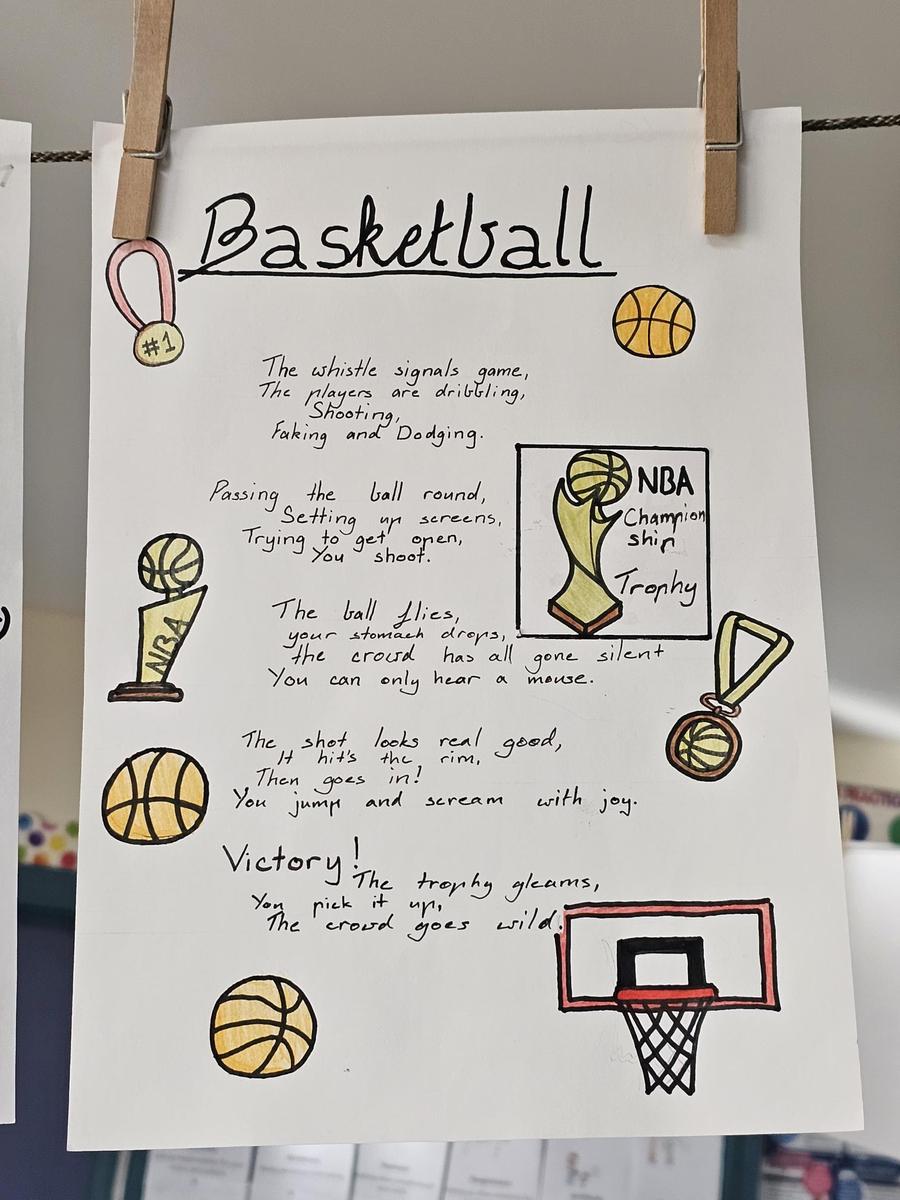 Basketball
#1
The whistle signals game,
The players are dribbling,
Shooting,
Faking and Dodging.
Passing the ball round,
Setting up screens,
Trying to get open,
You shoot.
NBA
Champion
ship
Trophy
NBA
The ball flies,
your stomach drops,
the crowd has all gone silent
You can only hear a mouse.
The shot looks real good,
It hit's the rim,
Then goes in!
You jump and scream with joy.
Victory!
The trophy gleams,
You pick it up,
The crowd goes wild.